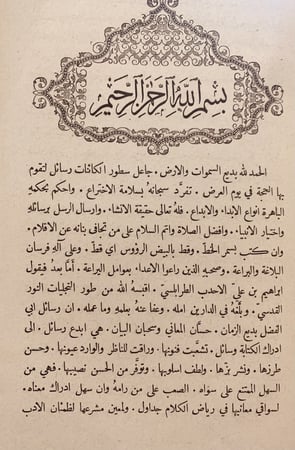 بسم الله الرحمن الرحيم
الحمد لله بديع السموات والارض . جاعل سطور الكائنات رسائل لتقوم
بها الحجة في يوم العرض . تفرّد سبحانه بسلامة الاختراع . واحكم بحكمهِ
الباهرة انواع الابداء والابداع . فله تعالى حقيقة الانشاء . وارسال الرسل برسائله
واختيار الانبياء . وافضل الصلاة واتم السلام على من تجافى بنانه عن الاقلام .
وان كتب بسمر الخط . وقط بالبيض الرؤوس اي قط . وعلى آله فرسان
البلاغة والبراعة . وصحبهِ الذين راعوا الاعداء بعوامل البراعة . أمّا بعدُ فيقول
ابراهيم بن علي الاحدب الطرابلسي . اقتبسهُ الله من طور التجليات النور
القدسي . وبلّغهُ في الدارين امله . وعفا عنهُ بعلمهِ وما عمله . ان رسائل ابي
الفضل بديع الزمان . حسّان المعاني وسحبان البيان . هي ابدع رسائل . الى
ادراك الكتابة وسائل . تشعَّبت فنونها . وراقت للناظر والوارد عيونها . وحسن
طرزها . ونشر بزّها . ولطف اسلوبها . وتوفَّر من الحسن نصيبها . فهي من
السهل الممتنع على سواه . الصعب على من رامهُ وان سهل ادراك معناه .
لسواقي معانيها في رياض الكلام جداول . ولمعين مشرعها لظمآن الادب